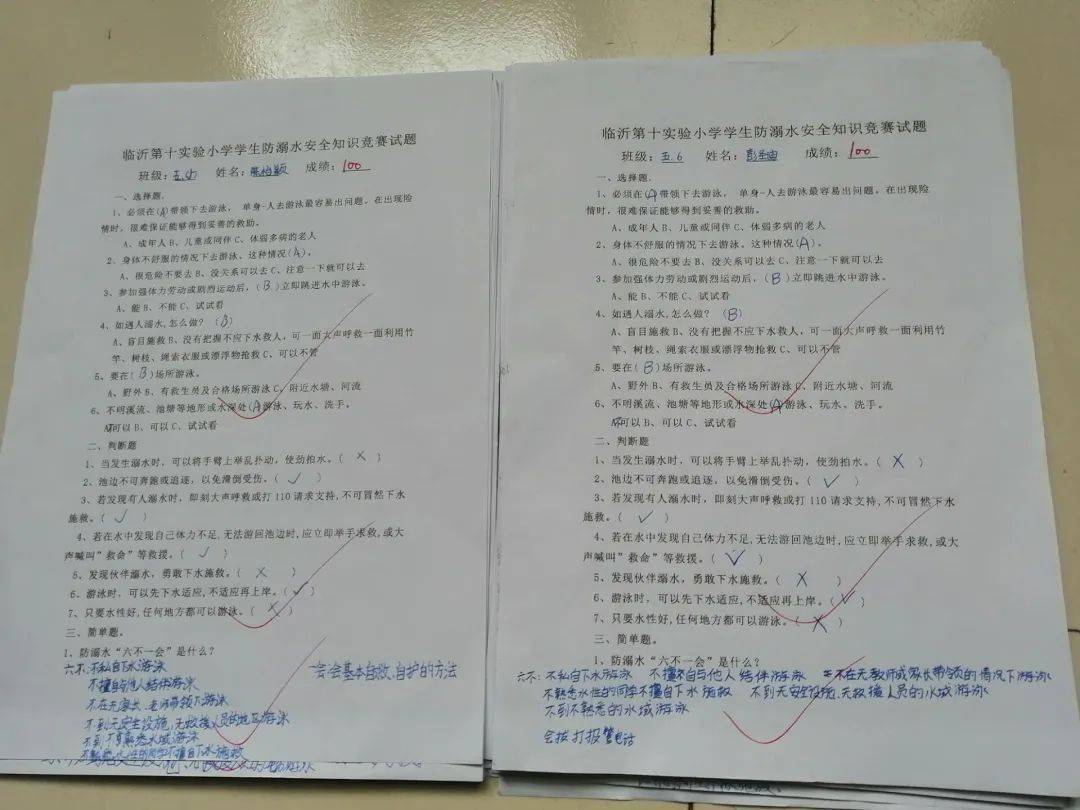 临沂第十实验小学学生防溺水安全知识竞赛试题
班级：五.4 姓名： 成绩：100
一、选择题.
1、必须在(A)带领下去游泳， 单身-人去游泳最容易出问题。在出现险
情时，很难保证能够得到妥善的救助。
A、成年人 B、儿童或同伴 C、体弱多病的老人
2、身体不舒服的情况下去游泳。这种情况(A)。
A、很危险不要去 B、没关系可以去 C、注意一下就可以去
3、参加强体力劳动或剧烈运动后，(B)立即跳进水中游泳。
A、能 B、不能 C、试试看
4、如遇人溺水,怎么做？ (B)
A、盲目施救 B、没有把握不应下水救人，可一面大声呼救一面利用竹
竿、树枝、绳索衣服或漂浮物抢救 C、可以不管
5、要在(B)场所游泳。
A、野外 B、有救生员及合格场所游泳 C、附近水塘、河流
6、不明溪流、池塘等地形或水深处(A)游泳、玩水、洗手。
不可以 B、可以 C、试试看
二、判断题
1、当发生溺水时，可以将手臂上举乱扑动，使劲拍水。( × )
2、池边不可奔跑或追逐，以免滑倒受伤。( ✓ )
3、若发现有人溺水时，即刻大声呼救或打 110 请求支持,不可冒然下水
施救。( ✓ )
4、若在水中发现自己体力不足,无法游回池边时,应立即举手求救,或大
声喊叫”救命”等救援。( ✓ )
5、发现伙伴溺水，勇敢下水施救。( × )
6、游泳时，可以先下水适应,不适应再上岸。( ✓ )
7、只要水性好,任何地方都可以游泳。( × )
三、简单题。
1、防溺水“六不一会”是什么？
六不:不私自下水游泳
一会:会基本自救、自护的方法
不擅自与他人结伴游泳
不在无家长、老师带领下游泳
不到无安全设施,无救援人员的地区游泳
不到不熟悉水域游泳
不熟悉水性的同学不擅自下水施救
临沂第十实验小学学生防溺水安全知识竞赛试题
班级：五.6 姓名： 成绩：100
一、选择题.
1、必须在(A)带领下去游泳， 单身-人去游泳最容易出问题。在出现险
情时，很难保证能够得到妥善的救助。
A、成年人 B、儿童或同伴 C、体弱多病的老人
2、身体不舒服的情况下去游泳。这种情况(A)。
A、很危险不要去 B、没关系可以去 C、注意一下就可以去
3、参加强体力劳动或剧烈运动后，(B)立即跳进水中游泳。
A、能 B、不能 C、试试看
4、如遇人溺水,怎么做？ (B)
A、盲目施救 B、没有把握不应下水救人，可一面大声呼救一面利用竹
竿、树枝、绳索衣服或漂浮物抢救 C、可以不管
5、要在(B)场所游泳。
A、野外 B、有救生员及合格场所游泳 C、附近水塘、河流
6、不明溪流、池塘等地形或水深处(A)游泳、玩水、洗手。
不可以 B、可以 C、试试看
二、判断题
1、当发生溺水时，可以将手臂上举乱扑动，使劲拍水。( × )
2、池边不可奔跑或追逐，以免滑倒受伤。( ✓ )
3、若发现有人溺水时，即刻大声呼救或打 110 请求支持,不可冒然下水
施救。( ✓ )
4、若在水中发现自己体力不足,无法游回池边时,应立即举手求救,或大
声喊叫”救命”等救援。( ✓ )
5、发现伙伴溺水，勇敢下水施救。( × )
6、游泳时，可以先下水适应,不适应再上岸。( ✓ )
7、只要水性好,任何地方都可以游泳。( × )
三、简单题。
1、防溺水“六不一会”是什么？
六不:不私自下水游泳 不擅自与他人结伴游泳 不在无教师或家长带领的情况下游泳
不熟悉水性的同学不擅自下水施救 不到无安全设施,无救援人员的水域游泳
不到不熟悉的水域游泳
会拨打报警电话